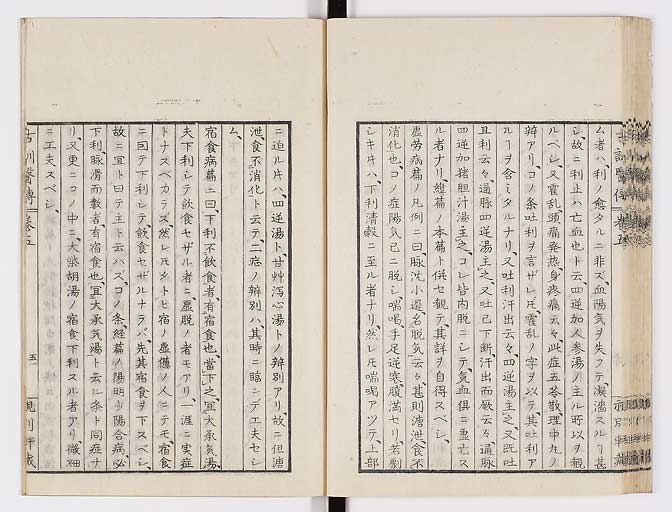 ム者ハ、利ノ愈タルニ非ズ、血陽気ヲ失フテ、濡スルノ甚
シ、故ニ利止ハ亡血也ト云、四逆加人参湯ノ主ル所以ヲ観
ルベシ、又霍乱、頭痛発熱、身疼痛云々、此症五苓散理中丸ノ
辨アリ、コノ条吐利ヲ言ザレ𪜈、霍乱ノ字ヲ以テ、其吐利ア
ルヿヲ含ミタルナリ、又吐利汗出云々、四逆湯主之、又既吐
且利云々、通脉四逆湯主之、又吐已下断、汗出而厥云々、通脉
四逆加猪胆汁湯主之、コレ皆内脱ニシテ、気血俱ニ虚亡ス
ル者ナリ、雑篇ノ本篇ト併セ観テ、其詳ヲ自得スベシ、
虚労病篇ノ凡例ニ曰、脉沈小遅、名脱気云々、甚則溏泄、食不
消化也、コノ症陽気已ニ脱シ、喘喝、手足逆寒、腹満セリ、若劇
シキ片ハ、下利清穀ニ至ル者ナリ、然レ𪜈喘喝アツテ、上部
ニ迫ル片ハ、四逆湯ト、甘艸瀉心湯トノ辨別アリ、故ニ但溏
泄、食不消化ト云テ、二症ノ辨別ハ、其時ニ臨ンデ工夫セシ
ム、
宿食病篇ニ曰、下利不飲食者、有宿食也、当下之、宜大承気湯、
夫下利シテ飲食セザル者ニ、虚脱ノ者モアリ、一涯ニ実症
トナスベカラズ、然レ𪜈タトヒ宿ノ虚憊ノ人ニテモ、宿食
ニ因テ下利シテ飲食セザルナラバ、先其宿食ヲ下スベシ、
故ニ宜ト曰テ、主ト云ハズ、コノ条経篇ノ陽明少陽合病、必
下利、脉滑而数者、有宿食也、宜大承気湯ト云ル条ト同症ナ
リ、又更ニコノ中ニ、大柴胡湯ノ宿食下利スル者アリ、微細
ニ工夫スベシ、
古訓醫傳 巻五
五一